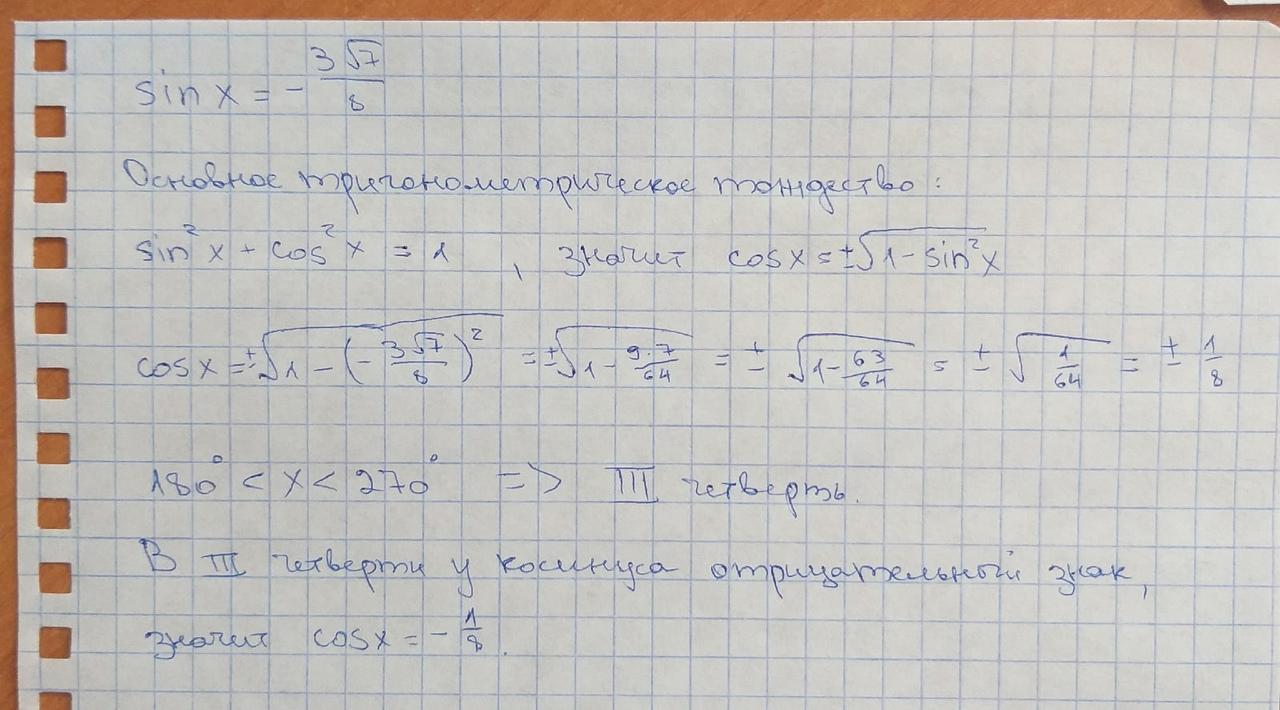 sin x = - 3√7/8
Основное тригонометрическое тождество:
sin²x + cos²x = 1, значит cos x = ±√(1 - sin²x)
cos x = ±√(1 - (-3√7/8)²) = ±√(1 - 9·7/64) = ±√(1 - 63/64) = ±√(1/64) = ± 1/8
180° < x < 270° => III четверть.
В III четверти у косинуса отрицательный знак,
значит cos x = - 1/8.